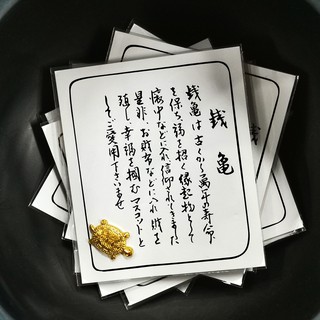 銭亀
銭亀は古くから萬年の寿命
を保ち、福を招く縁起物として
懐中などに入れ信仰されてきました
是非、お財布などに入れ、財を
殖し、幸福を掴むマスコットと
してご愛用下さいませ